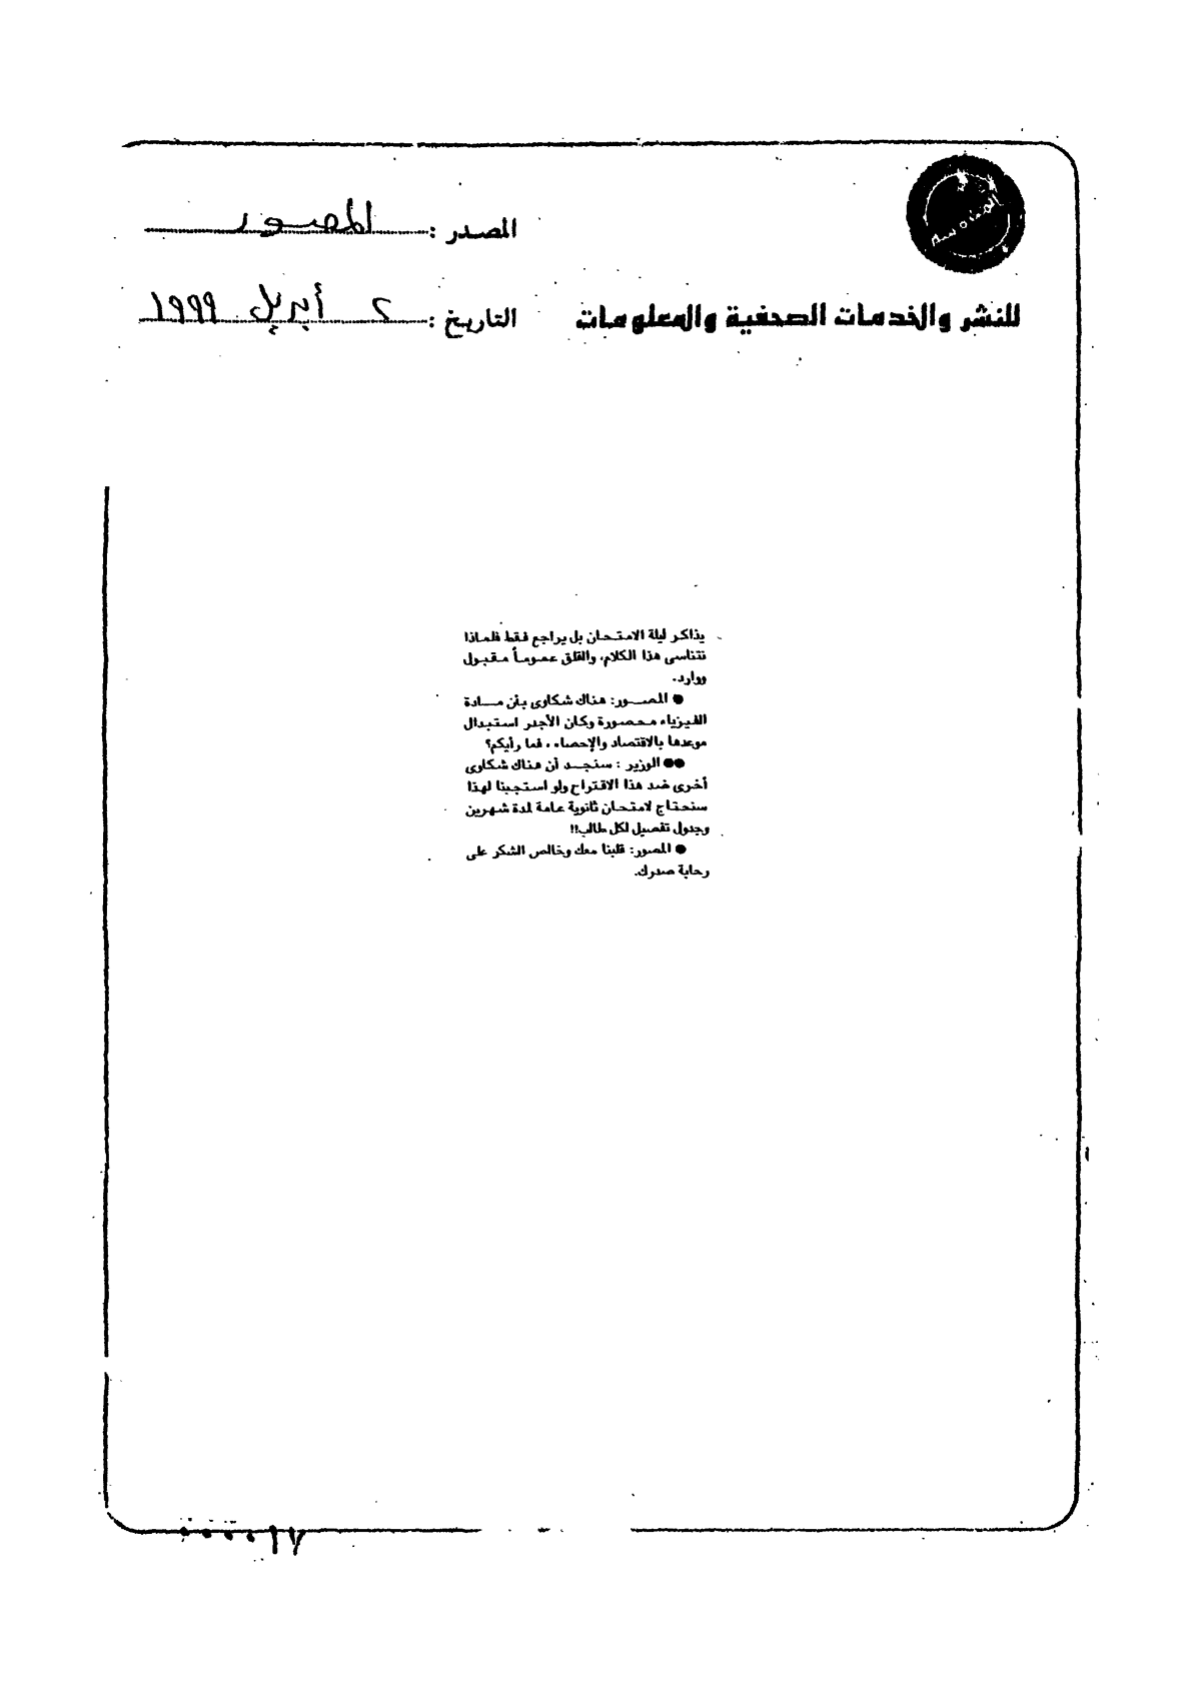 المصدر : المصور
للنشر والخدمات الصحفية والمعلومات
التاريخ : ٢ أبريل ١٩٩٩
يذاكر ليلة الامتحان بل يراجع فقط فلماذا
نتناسى هذا الكلام، والقلق عموماً مقبول
ووارد.
● المصور: هناك شكاوى بأن مادة
الفيزياء محصورة وكان الأجدر استبدال
موعدها بالاقتصاد والإحصاء، فما رأيكم؟
●● الوزير : سنجد أن هناك شكاوى
أخرى ضد هذا الاقتراح ولو استجبنا لهذا
سنحتاج لامتحان ثانوية عامة لمدة شهرين
وجدول تفصيل لكل طالب!!
● المصور: قلبنا معك وخالص الشكر على
رحابة صدرك.